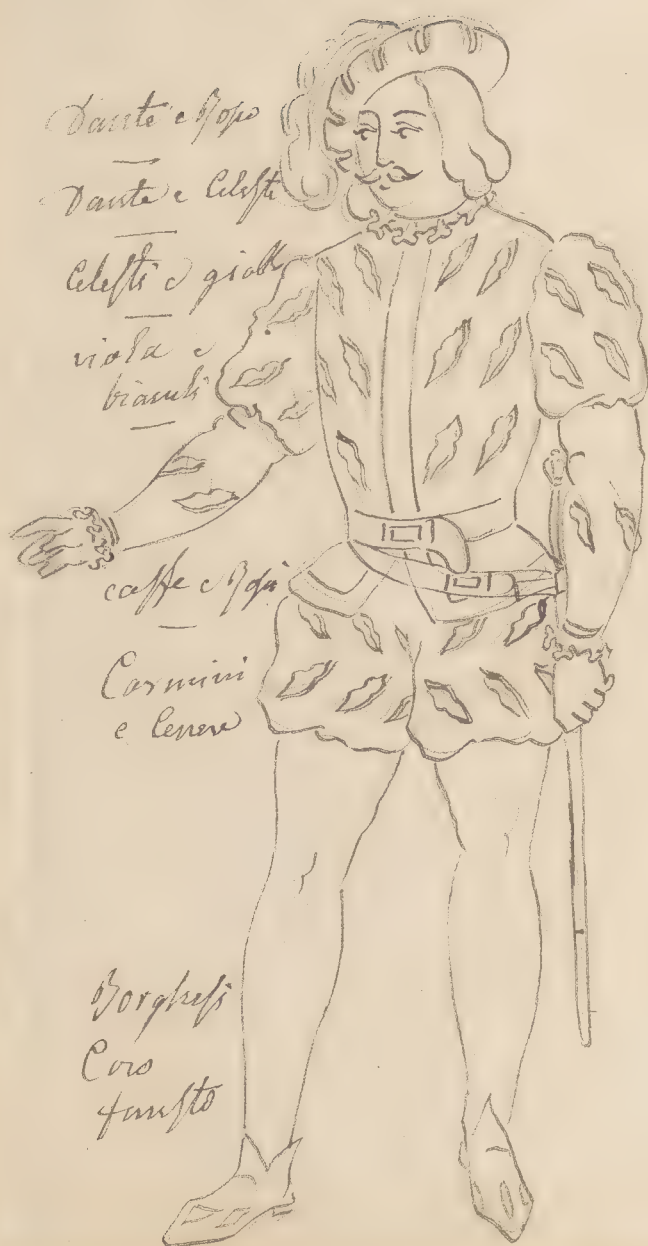 Dante e Rosso
Dante e Celeste
Celesti e gialli
viola e
bianchi
caffe e Rosa
Carmini
e Cenere
Borghesi
Coro
fausto